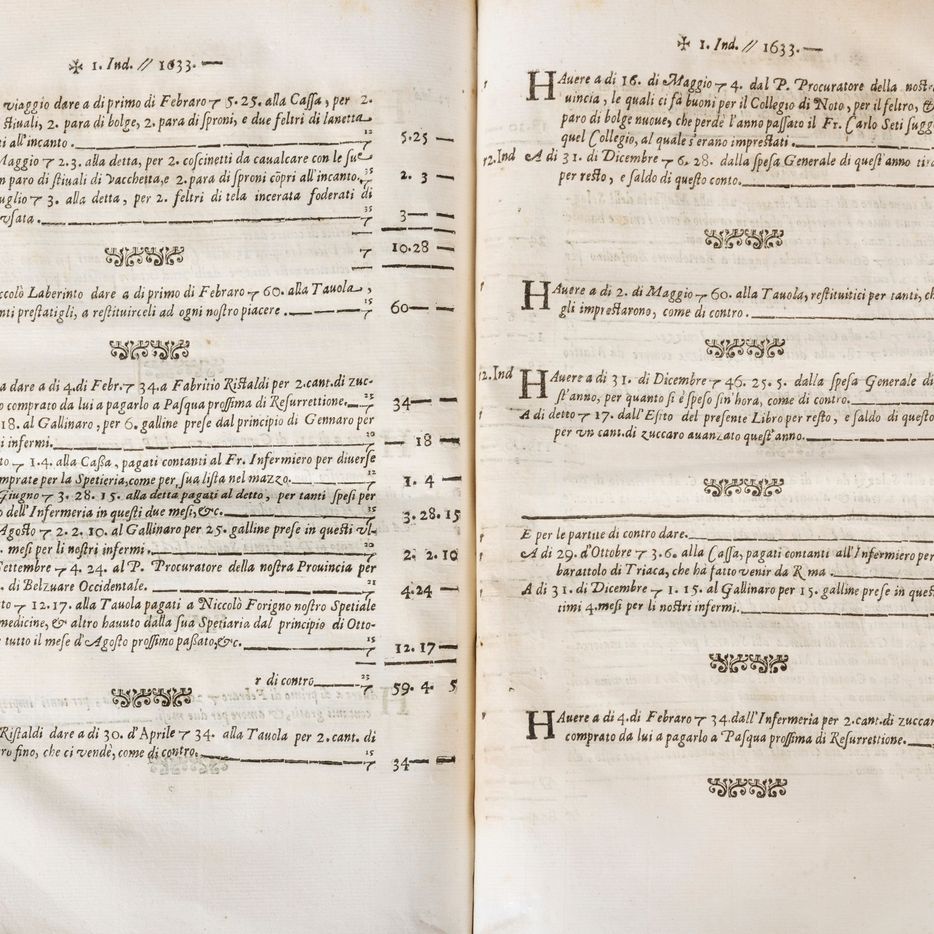 ✠ 1. Ind. // 1633.
viaggio dare a di primo di Febraro 7 5. 25. alla Cassa, per 2.
stiuali, 2. para di bolge, 2. para di sproni, e due feltri di lanetta
ti all'incanto. 12 7 5.25
Maggio 7 2. 3. alla detta, per 2. coscinetti da caualcare con le sue
n paro di stiuali di vacchetta, e 2. para di sproni cõpri all'incanto. 35 7 2. 3
uglio 7 3. alla detta, per 2. feltri di tela incerata foderati di
vsata. 35 7 3
7 10.28
ccolò Laberinto dare a di primo di Febraro 7 60. alla Tauola,
nti prestatigli, a restituirceli ad ogni nostro piacere. 15 7 60
a dare a di 4. di Febr. 7 34. a Fabritio Ristaldi per 2. cant. di zuc-
o comprato da lui a pagarlo a Pasqua prossima di Resurrettione. 35 7 34
18. al Gallinaro, per 6. galline prese dal principio di Gennaro per
i infermi. 20 7 18
to 7 1. 4. alla Cassa, pagati contanti al Fr. Infermiero per diuerse
mprate per la Spetieria, come per sua lista nel mazzo. 12 7 1. 4
Giugno 7 3. 28. 15. alla detta pagati al detto, per tanti spesi per
o dell'Infermeria in questi due mesi, &c. 35 7 3. 28. 15
Agosto 7 2. 2. 10. al Gallinaro per 25. galline prese in questi vl-
. mesi per li nostri infermi. 20 7 2. 2. 10
Settembre 7 4. 24. al P. Procuratore della nostra Prouincia per
. di Belzuare Occidentale. 21 7 4.24
to 7 12. 17. alla Tauola pagati a Niccolò Forigno nostro Spetiale
medicine, & altro hauuto dalla sua Spetiaria dal principio di Otto-
e tutto il mese d'Agosto prossimo passato, &c. 15 7 12. 17
r di contro 23 7 59. 4. 5
Ristaldi dare a di 30. d'Aprile 7 34. alla Tauola per 2. cant. di
ro fino, che ci vendè, come di contro. 15 7 34
✠ 1. Ind. // 1633.
HAuere a di 16. di Maggio 7 4. dal P. Procuratore della nostra
uincia, le quali ci fà buoni per il Collegio di Noto, per il feltro, &
paro di bolge nuoue, che perdè l'anno passato il Fr. Carlo Seti sugg
quel Collegio, al quale s'erano imprestati.
12. Ind A di 31. di Dicembre 7 6. 28. dalla spesa Generale di quest'anno tir
per resto, e saldo di questo conto.
HAuere a di 2. di Maggio 7 60. alla Tauola, restituitici per tanti, ch
gli imprestarono, come di contro.
12. Ind HAuere a di 31. di Dicembre 7 46. 25. 5. dalla spesa Generale di
st'anno, per quanto si è speso fin'hora, come di contro.
A di detto 7 17. dall'Esito del presente Libro per resto, e saldo di questo
per vn cant. di zuccaro auanzato quest'anno.
E per le partite di contro dare.
A di 29. d'Ottobre 7 3. 6. alla Cassa, pagati contanti all'Infermiero per
barattolo di Triaca, che hà fatto venir da R ma
A di 31. di Dicembre 7 1. 15. al Gallinaro per 15. galline prese in quest
timi 4. mesi per li nostri infermi.
HAuere a di 4. di Febraro 7 34. dall'Infermeria per 2. cant. di zuccar
comprato da lui a pagarlo a Pasqua prossima di Resurrettione.